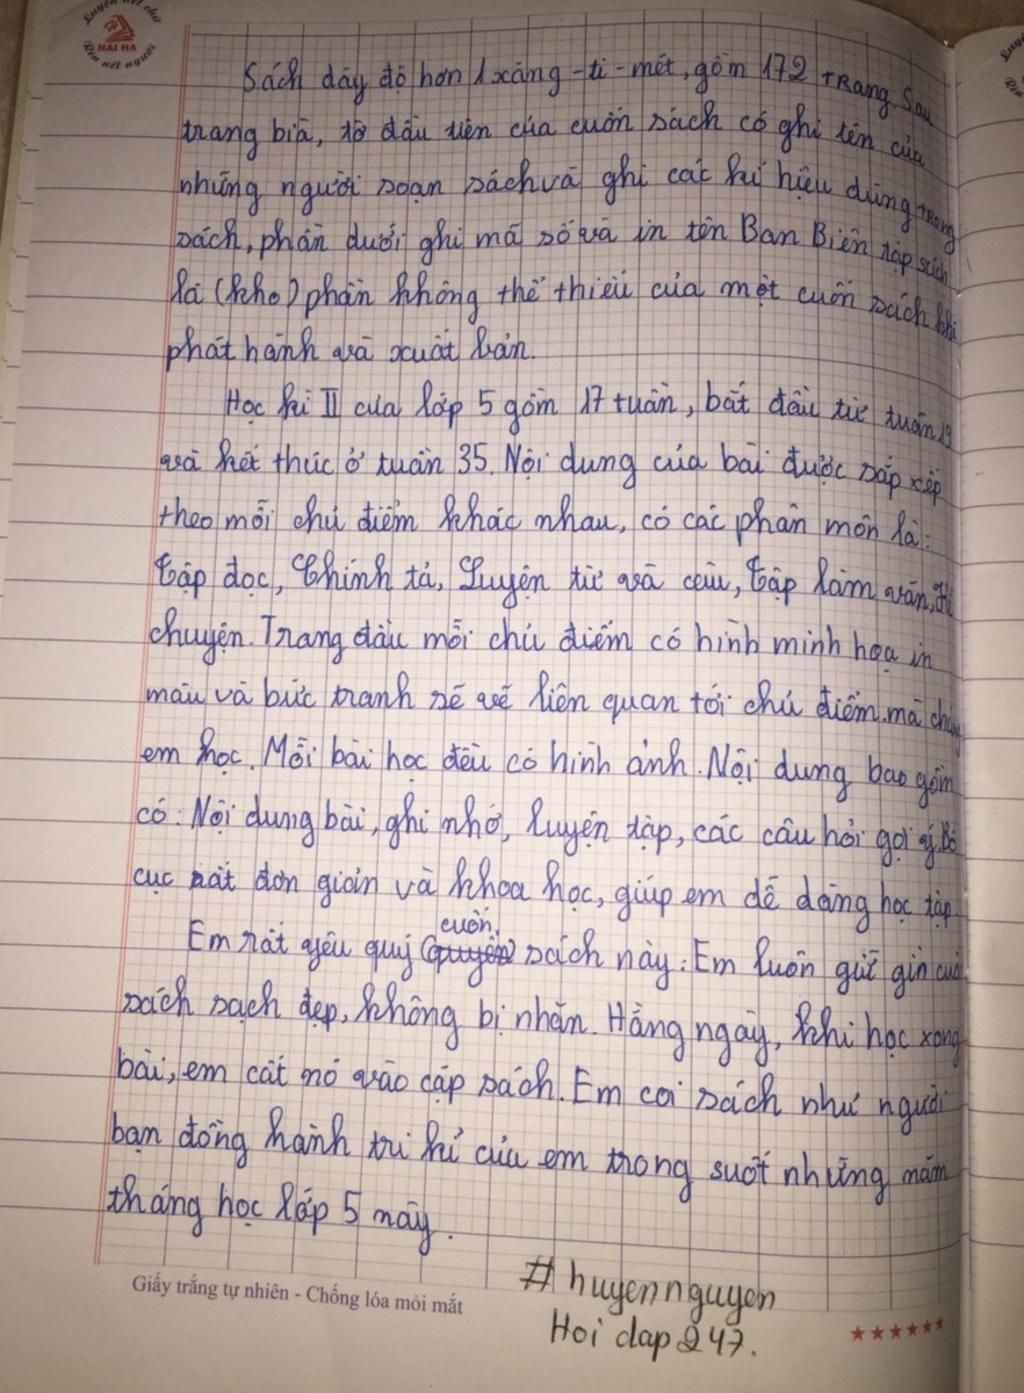 Luyện nét chữ
HẢI HÀ
Rèn nết người
Sách dày độ hơn 1 xăng-ti-mét, gồm 172 trang. Sau
trang bìa, tờ đầu tiên của cuốn sách có ghi tên của
những người soạn sách và ghi các kí hiệu dùng trong
sách, phần dưới ghi mã số và in tên Ban Biên tập sách
là (kho) phần không thể thiếu của một cuốn sách khi
phát hành và xuất bản.
Học kì II của lớp 5 gồm 17 tuần, bắt đầu từ tuần 19
và kết thúc ở tuần 35. Nội dung của bài được sắp xếp
theo mỗi chủ điểm khác nhau, có các phân môn là:
Tập đọc, Chính tả, Luyện từ và câu, Tập làm văn, Kể
chuyện. Trang đầu mỗi chủ điểm có hình minh họa in
màu và bức tranh sẽ vẽ liên quan tới chủ điểm mà chúng
em học. Mỗi bài học đều có hình ảnh. Nội dung bao gồm
có: Nội dung bài, ghi nhớ, luyện tập, các câu hỏi gợi ý. Bố
cục rất đơn giản và khoa học, giúp em dễ dàng học tập.
Em rất yêu quý (quyển) cuốn sách này. Em luôn giữ gìn cuốn
sách sạch đẹp, không bị nhăn. Hằng ngày, khi học xong
bài, em cất nó vào cặp sách. Em coi sách như người
bạn đồng hành tri kỉ của em trong suốt những năm
tháng học lớp 5 này.
Giấy trắng tự nhiên - Chống lóa mỏi mắt
# huyennguyen
Hoi dap 247.